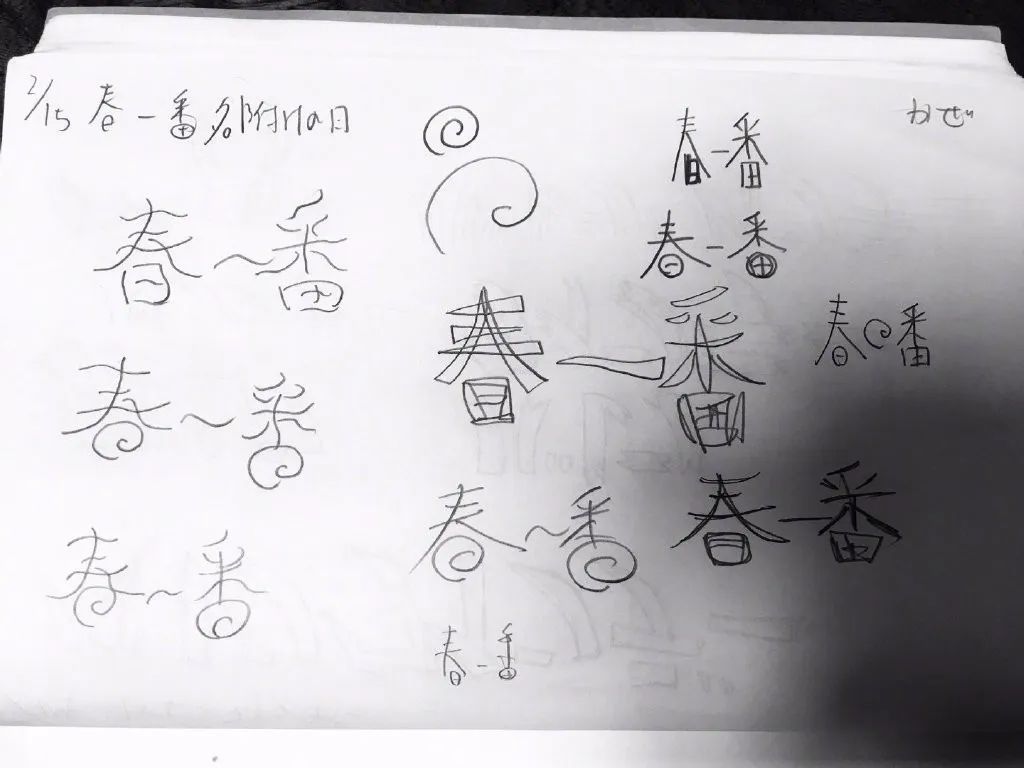 2/15 春一番名附けの日
かぜ
春一番
春一番
春一番
春一番
春一番
春一番
春一番
春一番
春一番
春一番